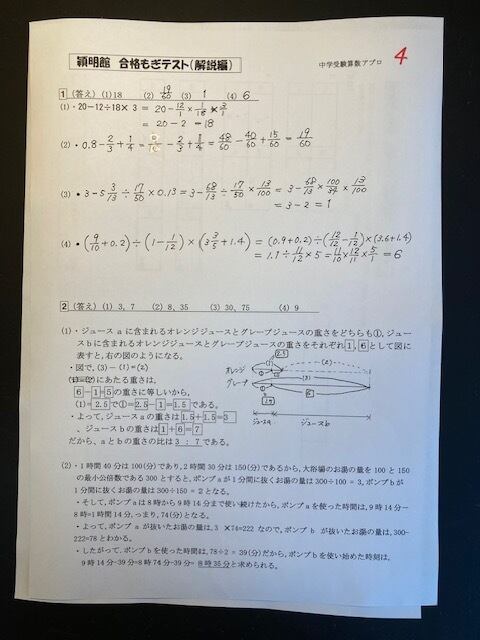 穎明館 合格もぎテスト(解説編)
中学受験算数アプロ
4
1 (答え) (1) 18 (2) 19/60 (3) 1 (4) 6
(1)・20−12÷18×3 = 20−12/1×1/18×3/1
= 20−2 =18
(2)・0.8−2/3+1/4=8/10−2/3+1/4=48/60−40/60+15/60=19/60
(3)・3−5 3/13÷17/50×0.13=3−68/13÷17/50×13/100=3−68/13×100/34×13/100
=3−2=1
(4)・(9/10+0.2)÷(1−1/12)×(3 3/5+1.4)=(0.9+0.2)÷(12/12−1/12)×(3.6+1.4)
=1.1÷11/12×5=11/10×12/11×5/1=6
2 (答え) (1) 3, 7 (2) 8, 35 (3) 30, 75 (4) 9
(1)・ジュースaに含まれるオレンジジュースとグレープジュースの重さをどちらも①,ジュー
スbに含まれるオレンジジュースとグレープジュースの重さをそれぞれ1,6として図に
表すと,右の図のようになる。
・図で,(3)−(1)=(2)
にあたる重さは,
6−1=5の重さに等しいから,
(1)=2.5で①=2.5−1=1.5である。
・よって,ジュースaの重さは1.5+1.5=3
、ジュースbの重さは1+6=7
だから,aとbの重さの比は3:7である。
2.5
(1)
(2)
オレンジ
① 1
(3)
グレープ
① 6
1.5
ジュースa ジュースb
(2)・1時間40分は100(分)であり,2時間30分は150(分)であるから,大浴場のお湯の量を100と150
の最小公倍数である300とすると,ポンプaが1分間に抜くお湯の量は300÷100=3,ポンプbが
1分間に抜くお湯の量は300÷150=2となる。
・そして,ポンプaは8時から9時14分まで使い続けたから,ポンプaを使った時間は,9時14分−
8時=1時間14分,つまり,74(分)となる。
・よって,ポンプaが抜いたお湯の量は,3×74=222なので,ポンプbが抜いたお湯の量は,300−
222=78とわかる。
・したがって,ポンプbを使った時間は,78÷2=39(分)だから,ポンプbを使い始めた時刻は,
9時14分−39分=8時74分−39分=8時35分と求められる。